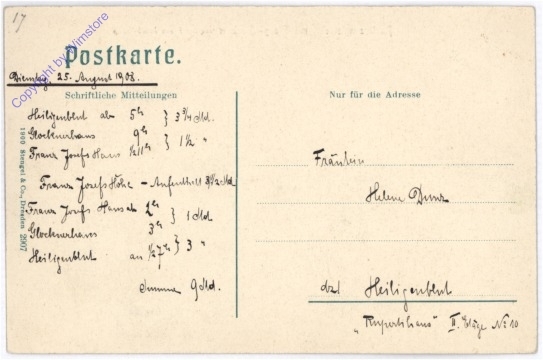 17
Copyright by Wimstore
Postkarte.
Dienstag, 25. August 1908.
Schriftliche Mitteilungen
Heiligenblut ab 5ʰ } 3 3/4 Std.
Glocknerhaus 9ʰ } 1½ "
Franz Josefs Haus ½11ʰ
Franz Josefs Höhe - Aufenthalt 3½ Std
Franz Josefs Haus ab 2ʰ } 1 Std
Glocknerhaus 3ʰ } 3 "
Heiligenblut an ½7ʰ
Summe 9 Std.
1909 Stengel & Co., Dresden 2907
Nur für die Adresse
Fräulein
Helene
dzt Heiligenblut
„Rupertihaus" II. Etage No 10